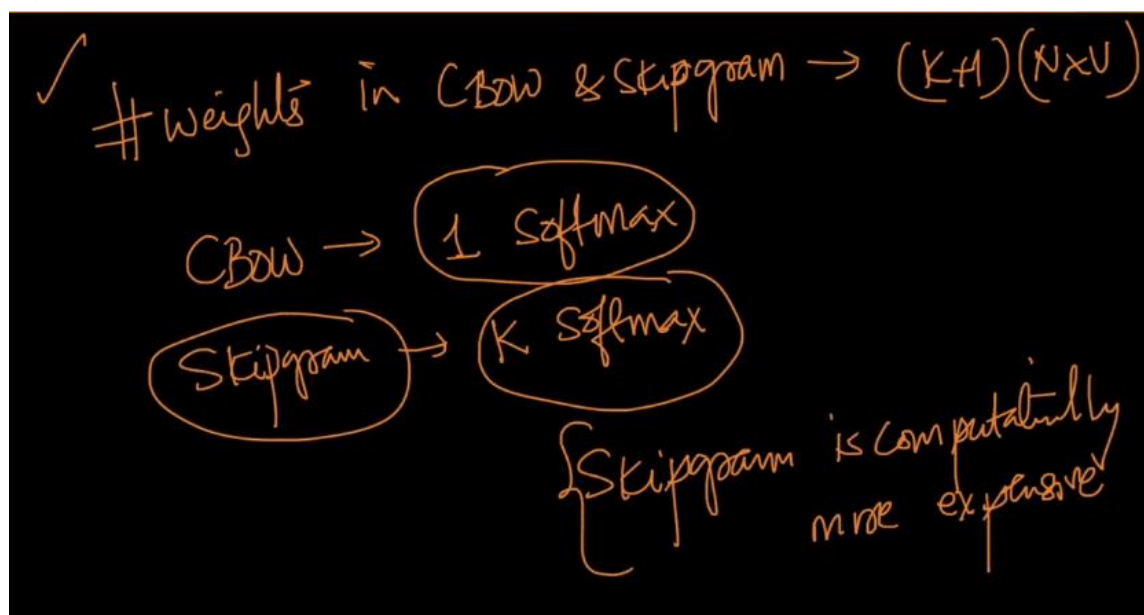 ✓ #weights in CBOW & Skipgram → (K+1)(N×V)
CBOW → 1 Softmax
Skipgram → K Softmax
{Skipgram is computatinally
more expensive